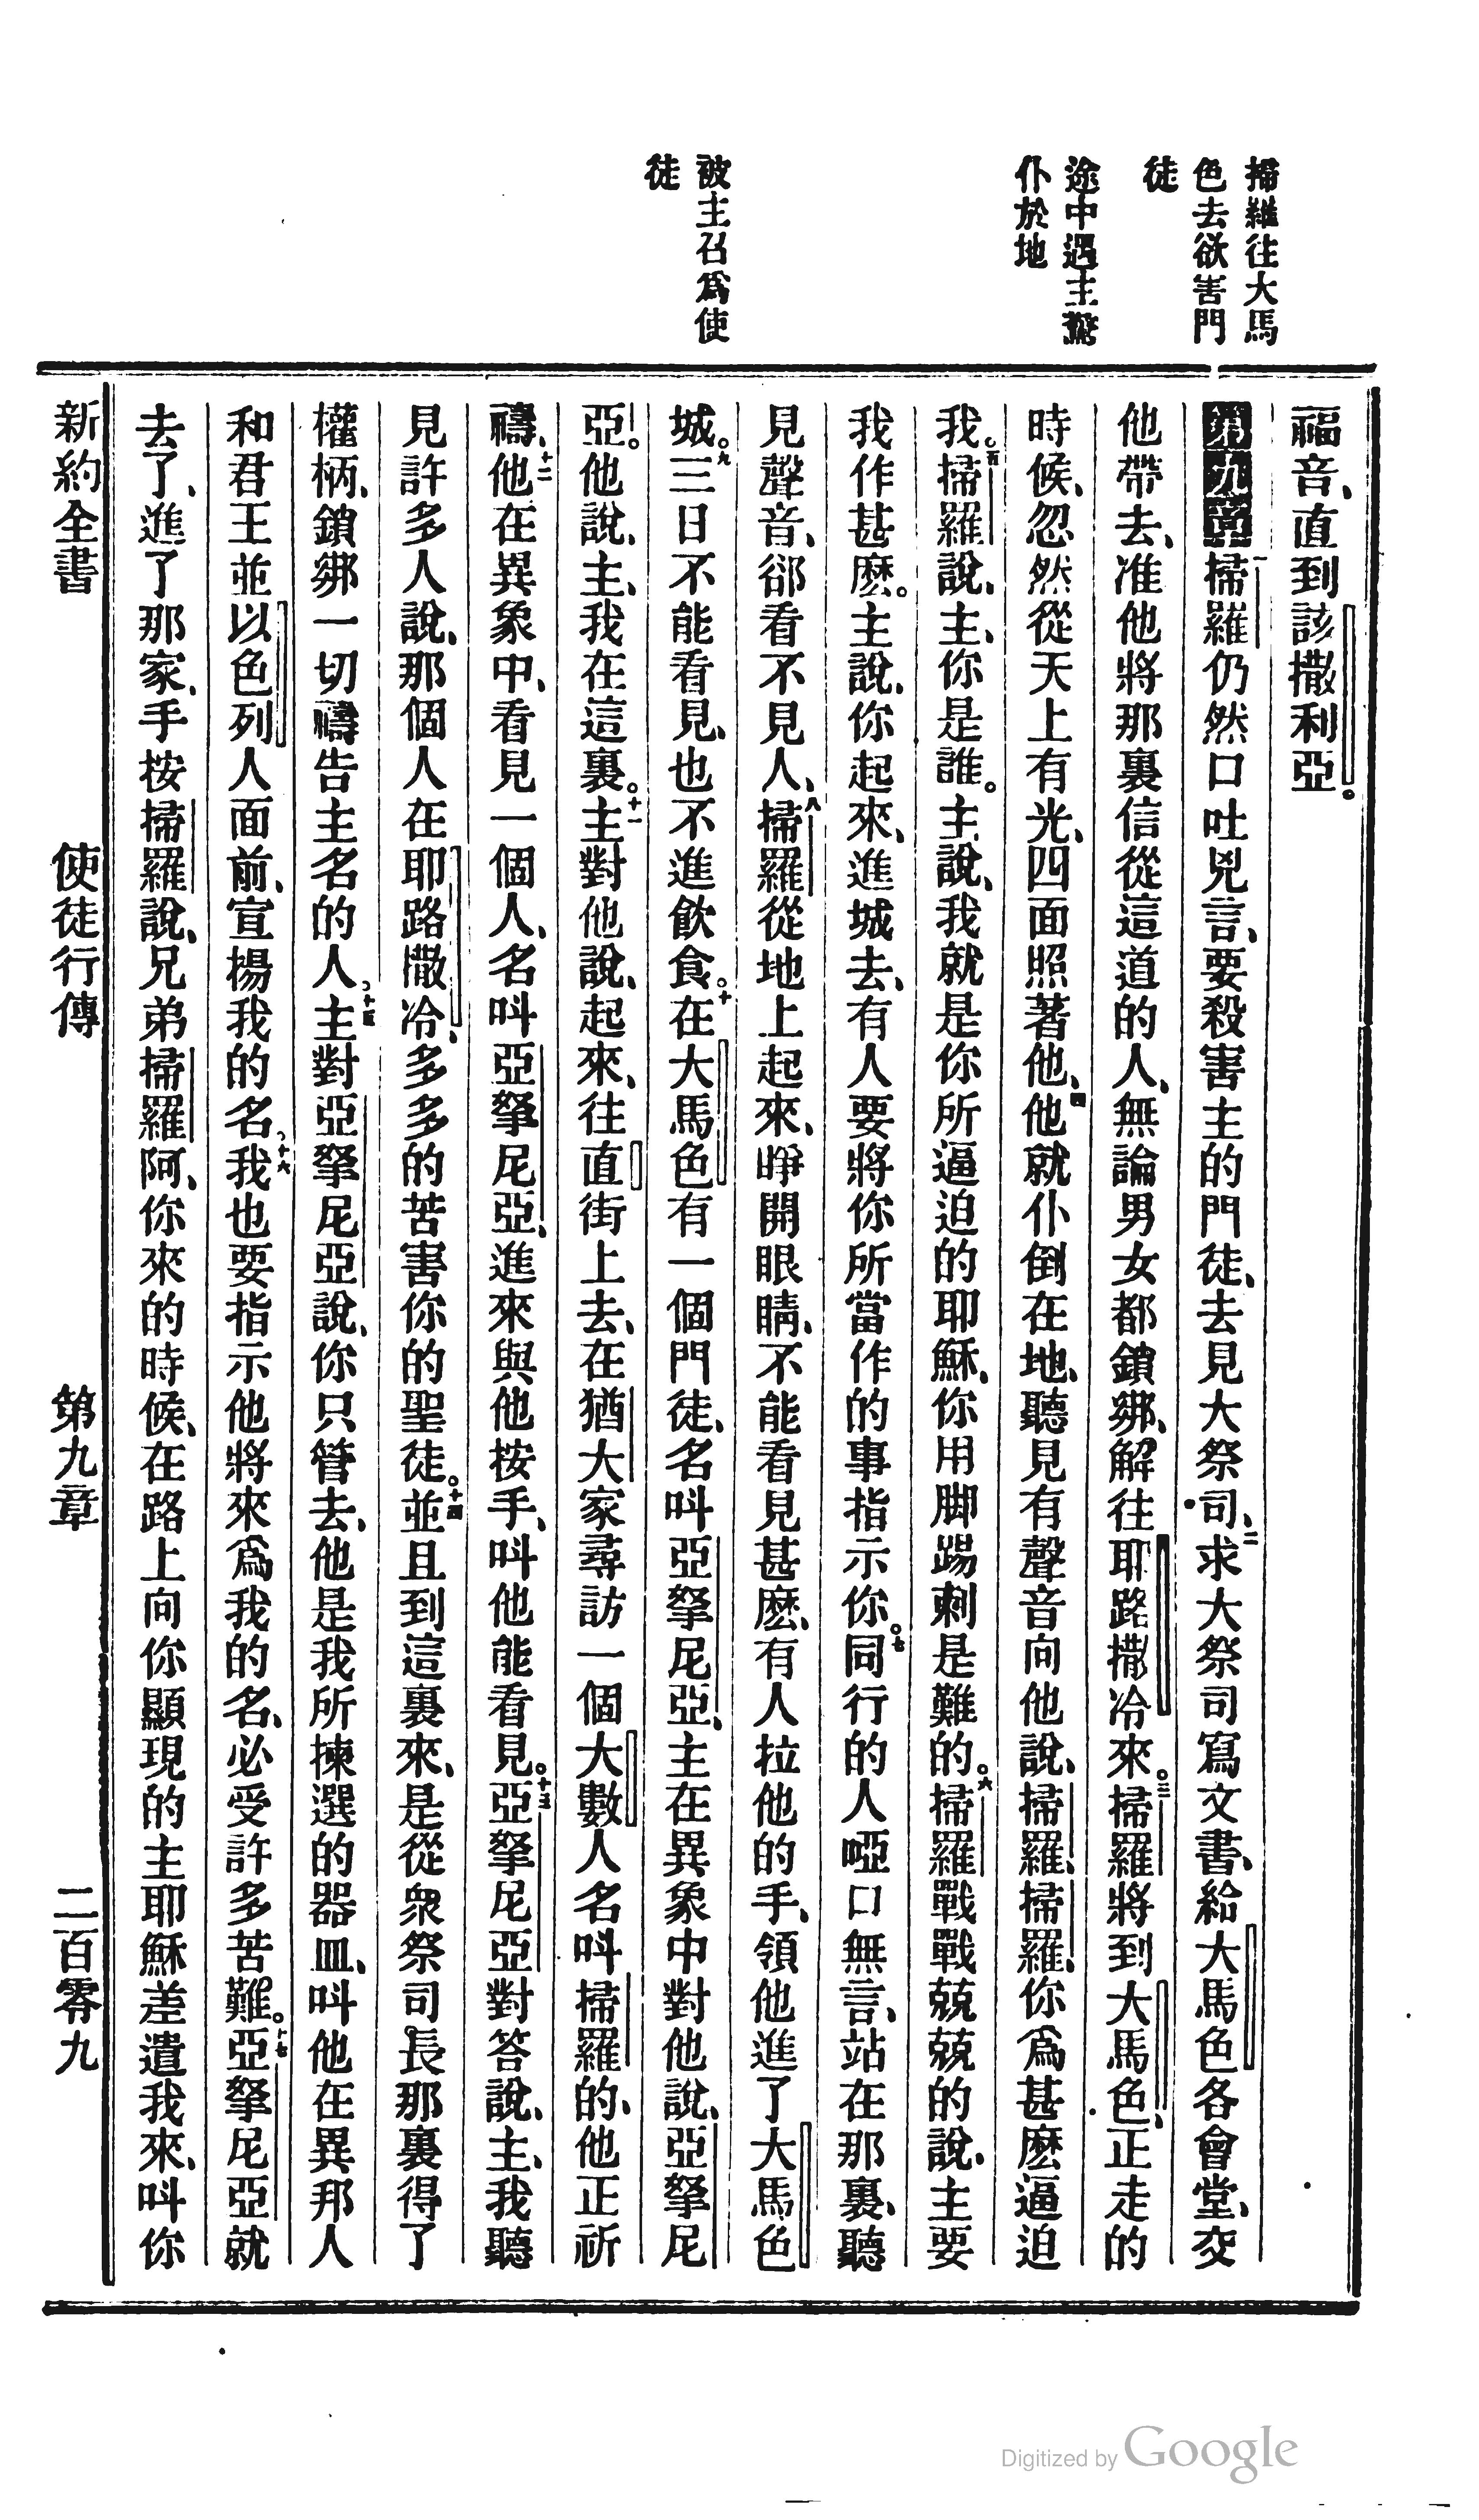 掃羅往大馬
色去欲害門
徒
途中遇主驚
仆於地
被主召爲使
徒
福音、直到該撒利亞。
第九章一掃羅仍然口吐兇言、要殺害主的門徒、去見大祭司、二求大祭司寫文書、給大馬色各會堂、交
他帶去、准他將那裏信從這道的人、無論男女都鎖綁、解往耶路撒冷來。三掃羅將到大馬色、正走的
時候、忽然從天上有光、四面照著他、四他就仆倒在地、聽見有聲音向他說、掃羅、掃羅、你爲甚麽逼迫
我。五掃羅說、主、你是誰。主說、我就是你所逼迫的耶穌、你用脚踢刺是難的。六掃羅戰戰兢兢的說、主要
我作甚麽。主說、你起來、進城去、有人要將你所當作的事指示你。七同行的人啞口無言、站在那裏、聽
見聲音、卻看不見人、八掃羅從地上起來、睜開眼睛、不能看見甚麽、有人拉他的手、領他進了大馬色
城。九三日不能看見、也不進飮食。十在大馬色有一個門徒、名呌亞拏尼亞、主在異象中對他說、亞拏尼
亞。他說、主、我在這裏。十一主對他說、起來、往直街上去、在猶大家尋訪一個大數人名呌掃羅的、他正祈
禱、十二他在異象中、看見一個人、名呌亞拏尼亞、進來與他按手、呌他能看見。十三亞拏尼亞對答說、主、我聽
見許多人說、那個人在耶路撒冷、多多的苦害你的聖徒。十四並且到這裏來、是從衆祭司長那裏得了
權柄、鎖綁一切禱告主名的人、十五主對亞拏尼亞說、你只管去、他是我所揀選的器皿、呌他在異邦人
和君王並以色列人面前、宣揚我的名、十六我也要指示他將來爲我的名、必受許多苦難。十七亞拏尼亞就
去了、進了那家、手按掃羅說、兄弟掃羅阿、你來的時候、在路上向你顯現的主耶穌差遣我來、呌你
新約全書 使徒行傳 第九章 二百零九
Digitized by Google